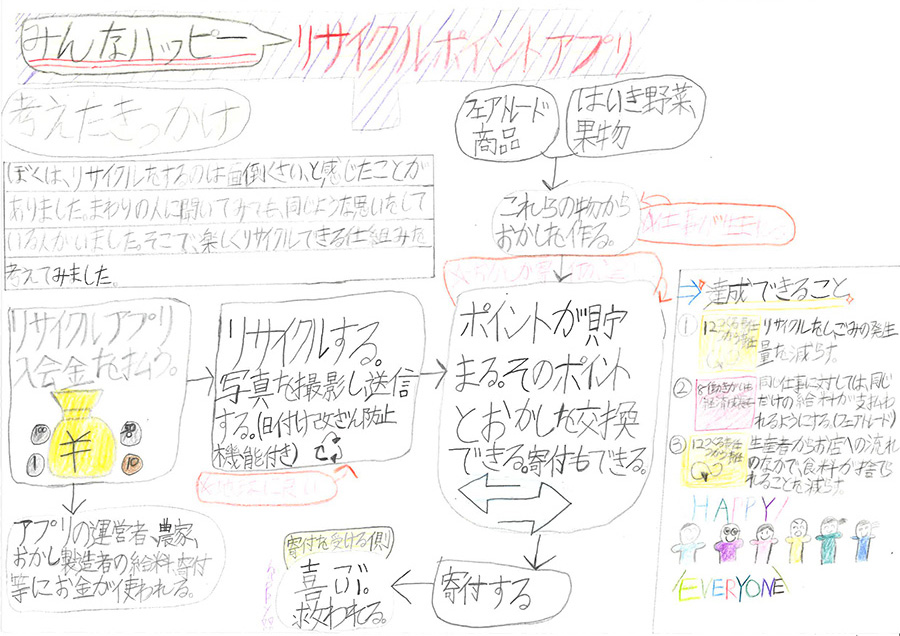 みんなハッピー
リサイクルポイントアプリ
考えたきっかけ
ぼくは、リサイクルをするのは面倒くさい、と感じたことが
ありました。まわりの人に聞いてみても、同じような思いをして
いる人がいました。そこで、楽しくリサイクルできる仕組みを
考えてみました。
フェアトレード
商品
はいき野菜、
果物
これらの物から
おかしを作る。
リサイクルアプリ
入会金を払う。
¥
1
10
リサイクルする。
写真を撮影し、送信
する。(日付け改ざん防止
機能付き)
ポイントが貯
まる。そのポイント
とおかしを交換
できる。寄付もできる。
アプリの運営者、農家、
おかし製造者の給料、寄付
等にお金が使われる。
寄付を受ける側
喜ぶ。
救われる。
寄付する
達成できること
①
12つくる責任
つかう責任
リサイクルをし、ごみの発生
量を減らす。
②
同じ仕事に対しては、同じ
だけの給料が支払わ
れるようにする。(フェアトレード)
③
12つくる責任
つかう責任
生産者からお店への流れ
のなかで、食料が捨てら
れることを減らす。
HAPPY!
EVERYONE